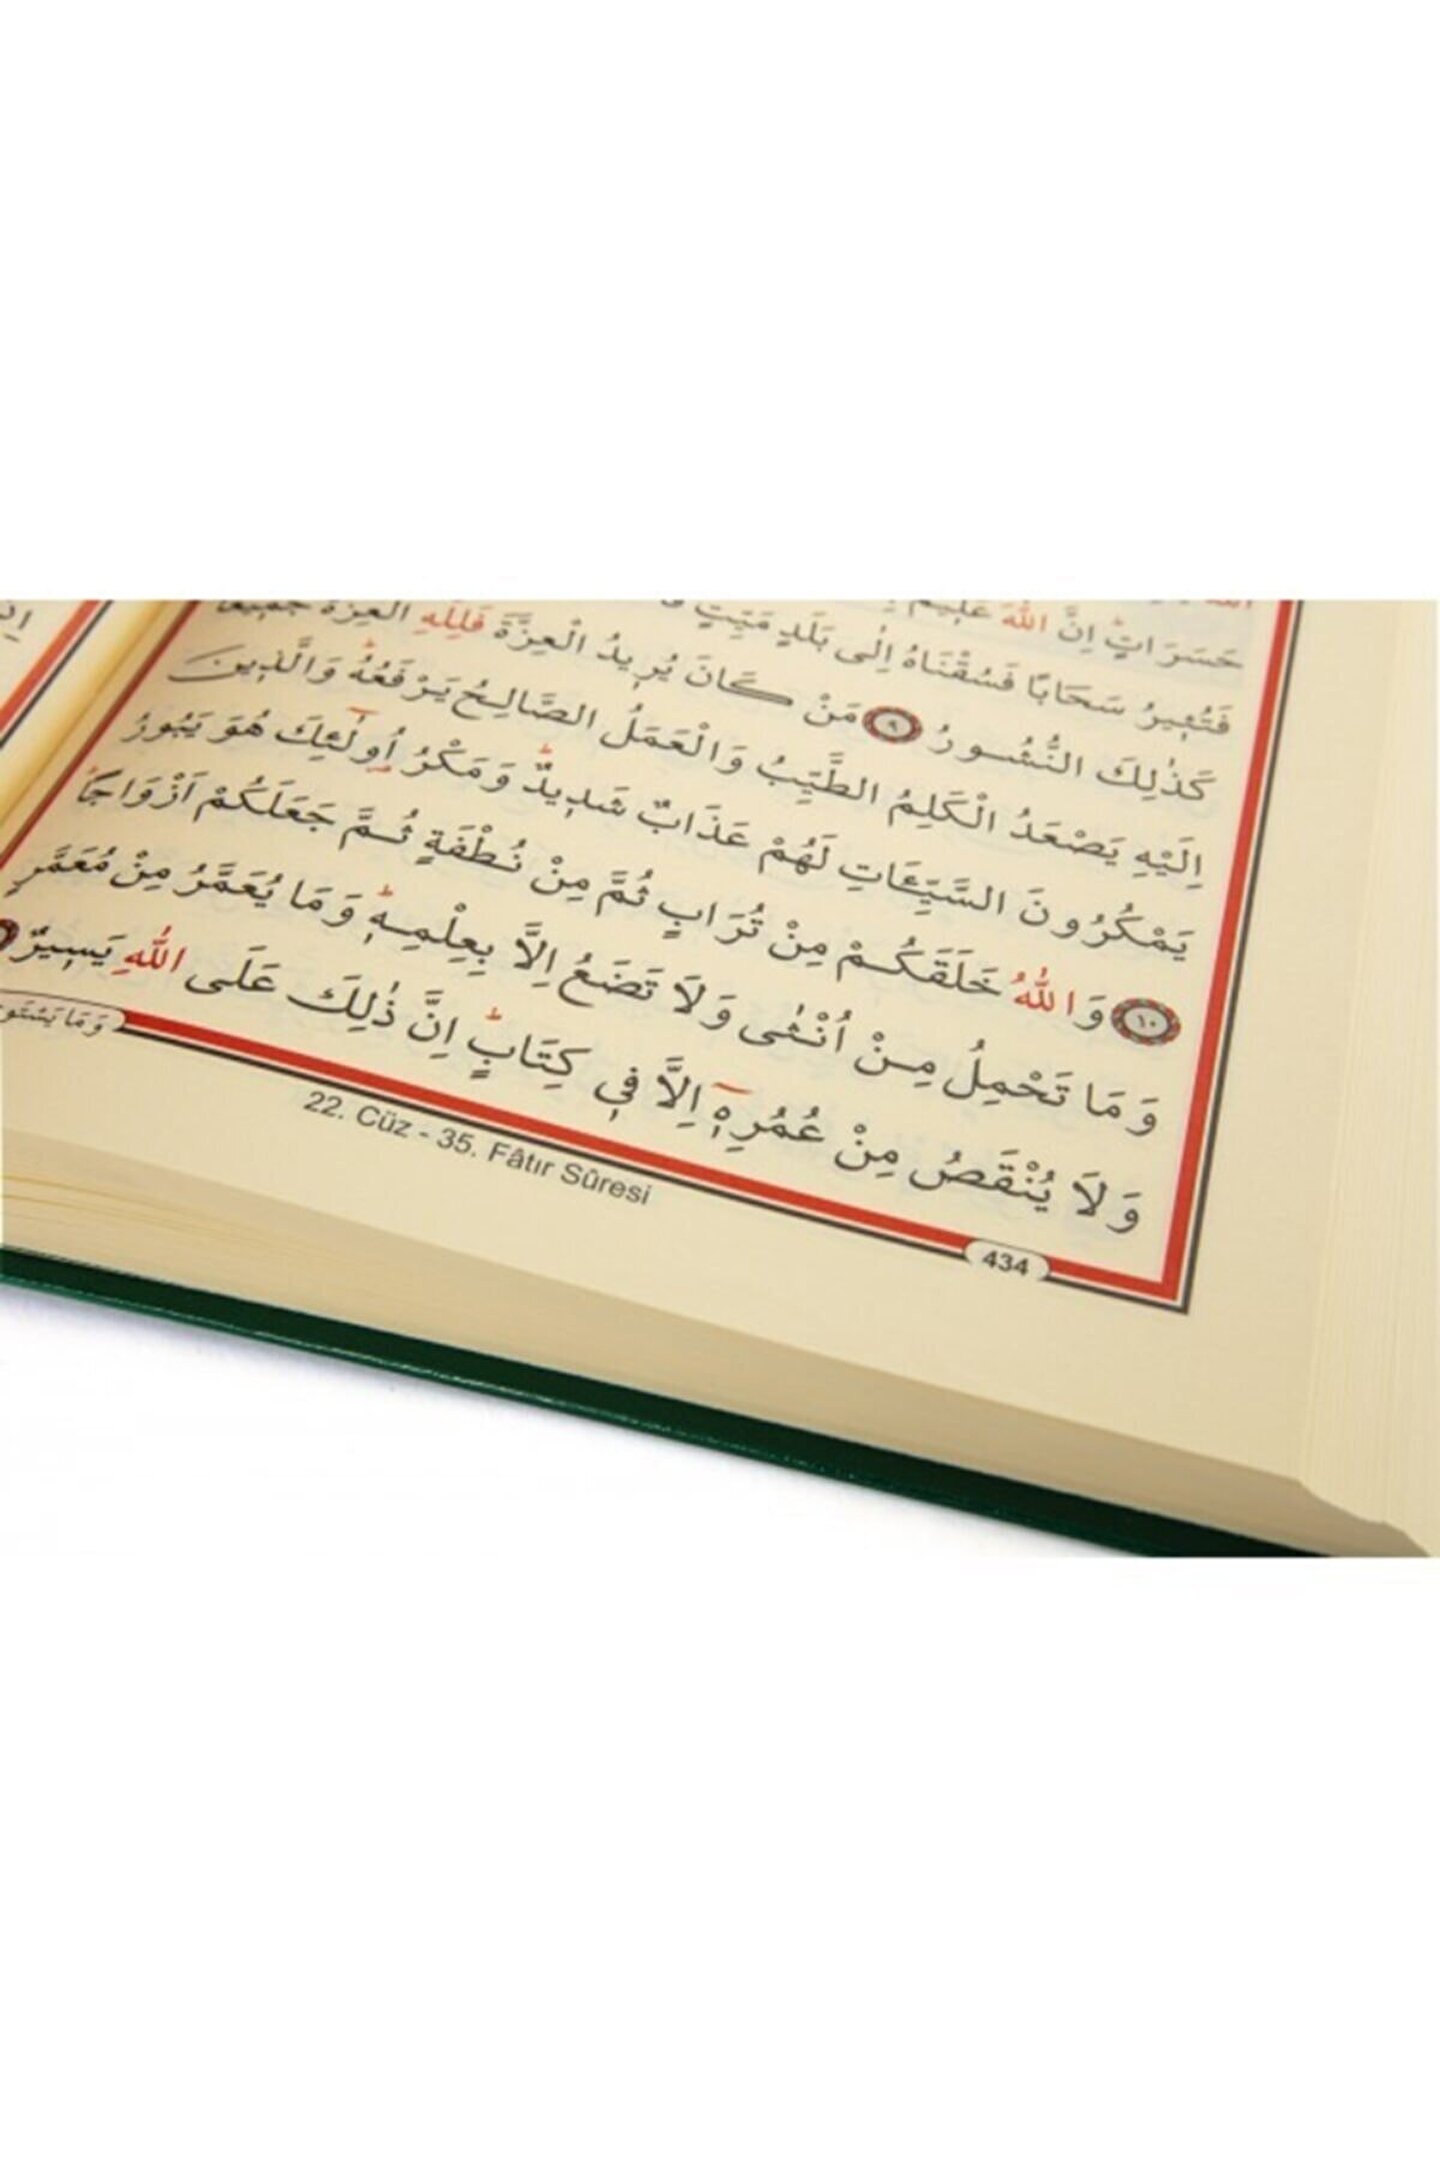 حَسَرَاتٍ اِنَّ اللّٰهَ عَلٖيمٌ
فَتُثٖيرُ سَحَابًا فَسُقْنَاهُ اِلٰى بَلَدٍ مَيِّتٍ
كَذٰلِكَ النُّشُورُ ﴿٩﴾ مَنْ كَانَ يُرٖيدُ الْعِزَّةَ فَلِلّٰهِ الْعِزَّةُ جَمٖيعًا
اِلَيْهِ يَصْعَدُ الْكَلِمُ الطَّيِّبُ وَالْعَمَلُ الصَّالِحُ يَرْفَعُهُ وَالَّذٖينَ
يَمْكُرُونَ السَّيِّـَٔاتِ لَهُمْ عَذَابٌ شَدٖيدٌ وَمَكْرُ اُولٰٓئِكَ هُوَ يَبُورُ
﴿١٠﴾ وَاللّٰهُ خَلَقَكُمْ مِنْ تُرَابٍ ثُمَّ مِنْ نُطْفَةٍ ثُمَّ جَعَلَكُمْ اَزْوَاجًا
وَمَا تَحْمِلُ مِنْ اُنْثٰى وَلَا تَضَعُ اِلَّا بِعِلْمِهٖ وَمَا يُعَمَّرُ مِنْ مُعَمَّرٍ
وَلَا يُنْقَصُ مِنْ عُمُرِهٖٓ اِلَّا فٖي كِتَابٍ اِنَّ ذٰلِكَ عَلَى اللّٰهِ يَسٖيرٌ
وَمَا يَسْتَوِي
434
22. Cüz - 35. Fâtır Sûresi